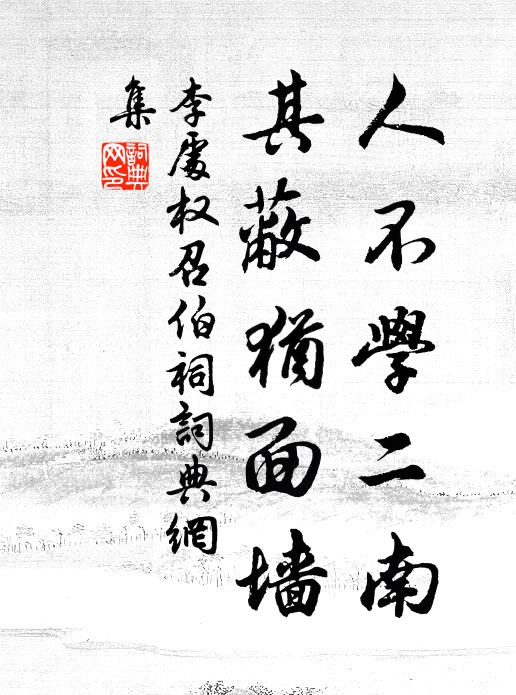 人不學二南
其蔽猶面墻
李處权召伯祠詞典網
集
詞典网印